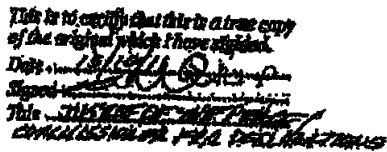 This is to certify that this is a true copy
of the original which I have sighted.
Date
Signed
Title JUSTICE OF THE PEACE
COMMISSIONER FOR DECLARATIONS